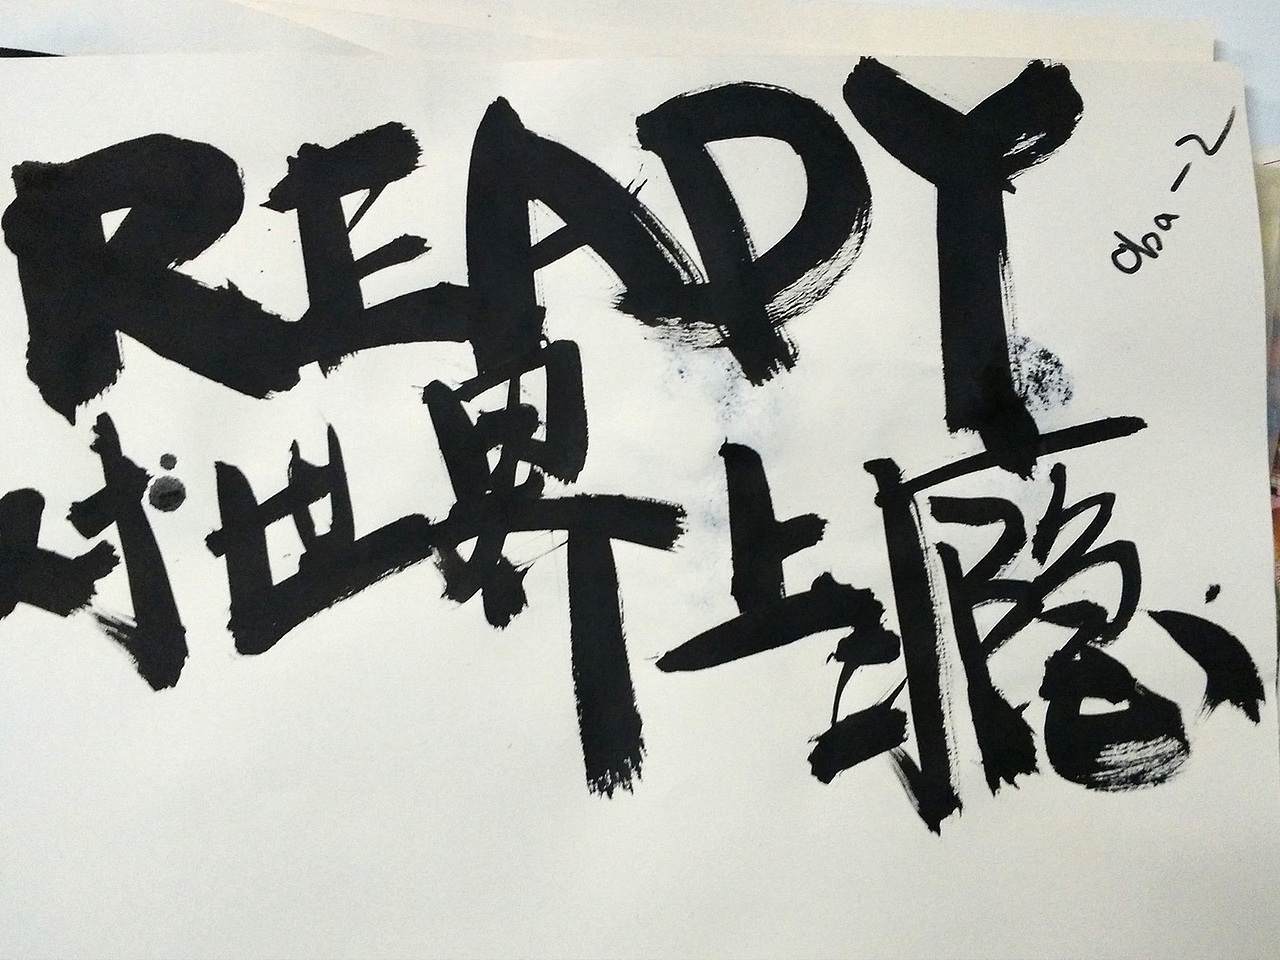 READY
对世界上瘾
oba-2